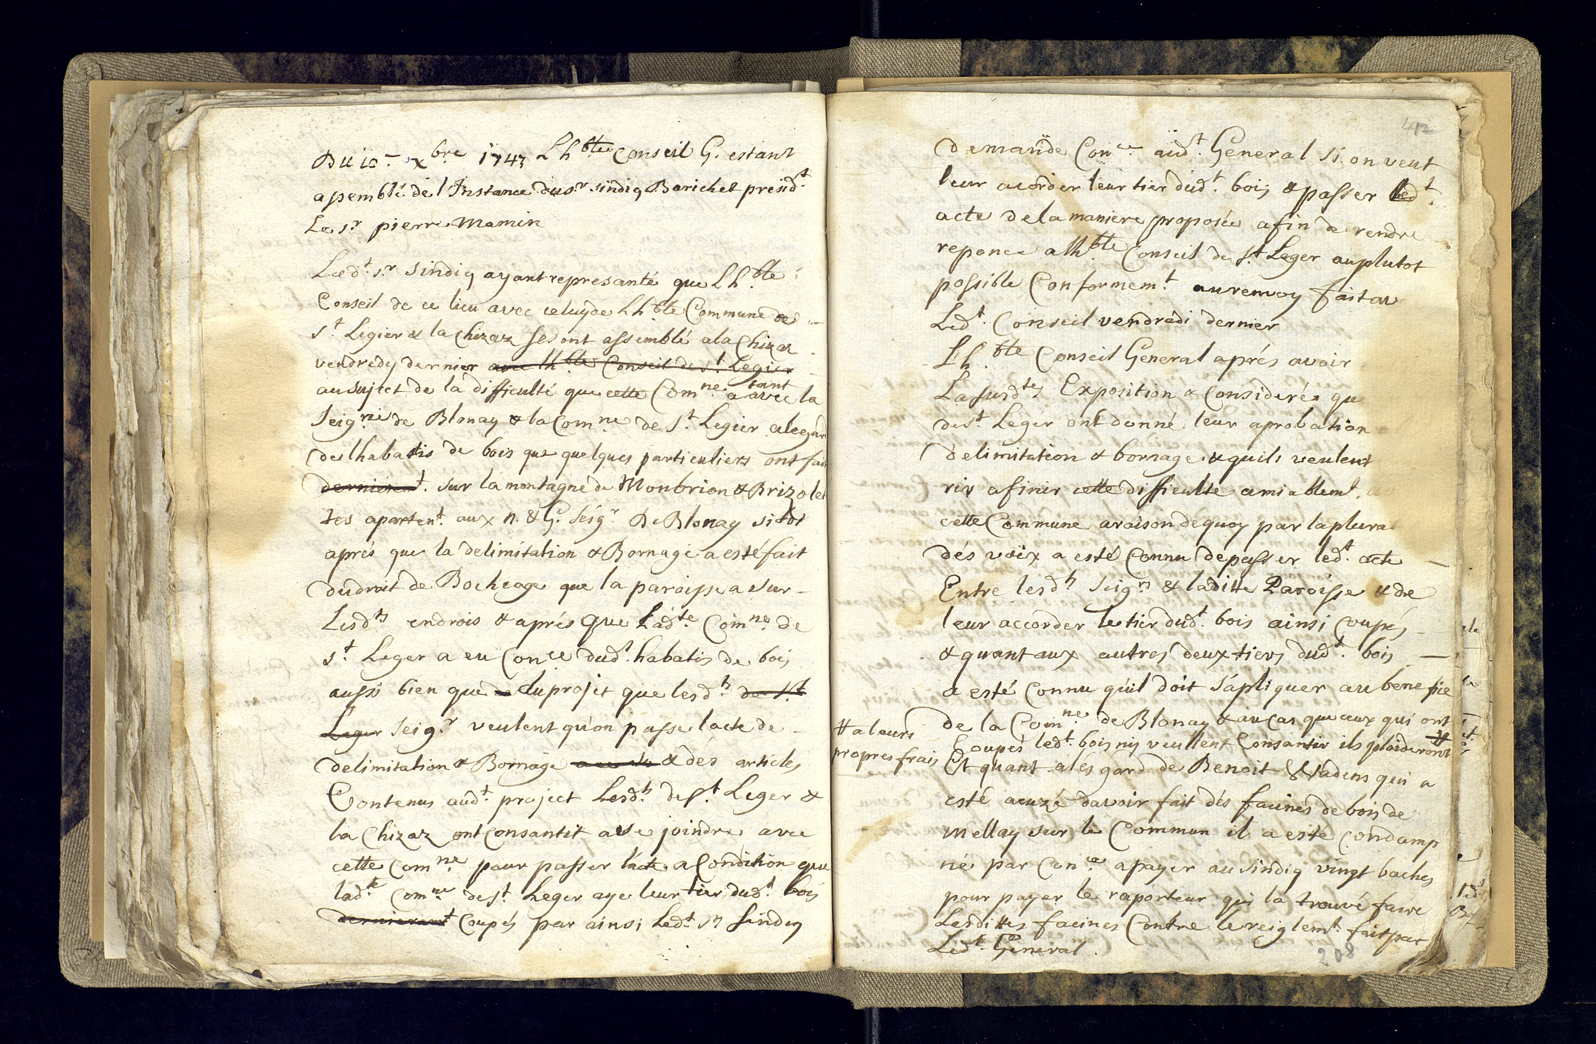 Du 10e xbre 1747 Lhble Conseil G. estant
assemblé de l'Instance du sr sindiq Barichet presidt
Le sr pierre Mamin
Ledt sr Sindiq ayant represanté que Lhble
Conseil de ce lieu avec celuy de Lhble Commune de
St Legier & la Chizaz se sont assimblé a la Chizaz
vendredy dernier avec lhble Conseil de st Legier
au sujet de la difficulté que cette Comne a tant avec la
Seigrie de Blonay & la Comne de St Legier alegard
des lhabatis de bois que quelques particuliers ont fait
dernieremt. sur la montagne de Monbrion & Brizolet
tes apartent. aux n. & G. Seigr De Blonay sitot
aprés que la delimitation & Bornage a esté fait
du droit de Bocheage que la paroisse a sur
Lesdts endrois & aprés que Ladte Comne de
st Leger a eu Conce dudt habatis de bois
aussi bien que du projet que lesdts de st
Leger Seigr veulent qu'on passe lacte de
delimitation & Bornage & des articles
Contenus audt project Lesdts de St Leger &
la Chizaz ont Consantit a se joindre avec
cette Comne pour passer lacte a Condition que
ladte Comne de st Leger aye leur tier dudt bois
dernieremt Coupés par ainsi Ledt sr Sindiq
42
demande Conce audt General si on veut
leur acorder leur tier dudt bois & passer ledt
acte de la maniere proposée afin de rendre
reponce a lhble Conseil de st Leger au plutot
possible Conformemt au renvoy fait au
Ledt Conseil vendredi dernier
Lhble Conseil General aprés avoir
La susdte Exposition & Considerés que
de st Leger ont donné leur aprobation
delimitation & bornage & quils veulent
rir a finir cette difficulté amiablemt.
cette Commune a raison de quoy par la plura
dés voix a esté Connu de passer ledt acte
Entre lesdts Seigrs & laditte Paroisse & de
leur accorder le tier dudt bois ainsi Coupés
& quant aux autres deux tiers dudt bois
a esté Connu quil doit s'apliquer au benefice
de la Comne de Blonay & au cas que ceux qui ont
# a leurs
propres frais
Coupés ledt bois n'y veullent Consantir ils plaideront #
Et quant a les gard de Benoit qui a
esté acuzé davoir fait dés facines de bois de
Mellay sur le Commun il a esté Condamp
né par Conce a payer au sindiq vingt baches
pour payer le raporteur qui la trouvé faire
Lesdittes facines Contre le reiglemt. fait par
Ledt General.
208